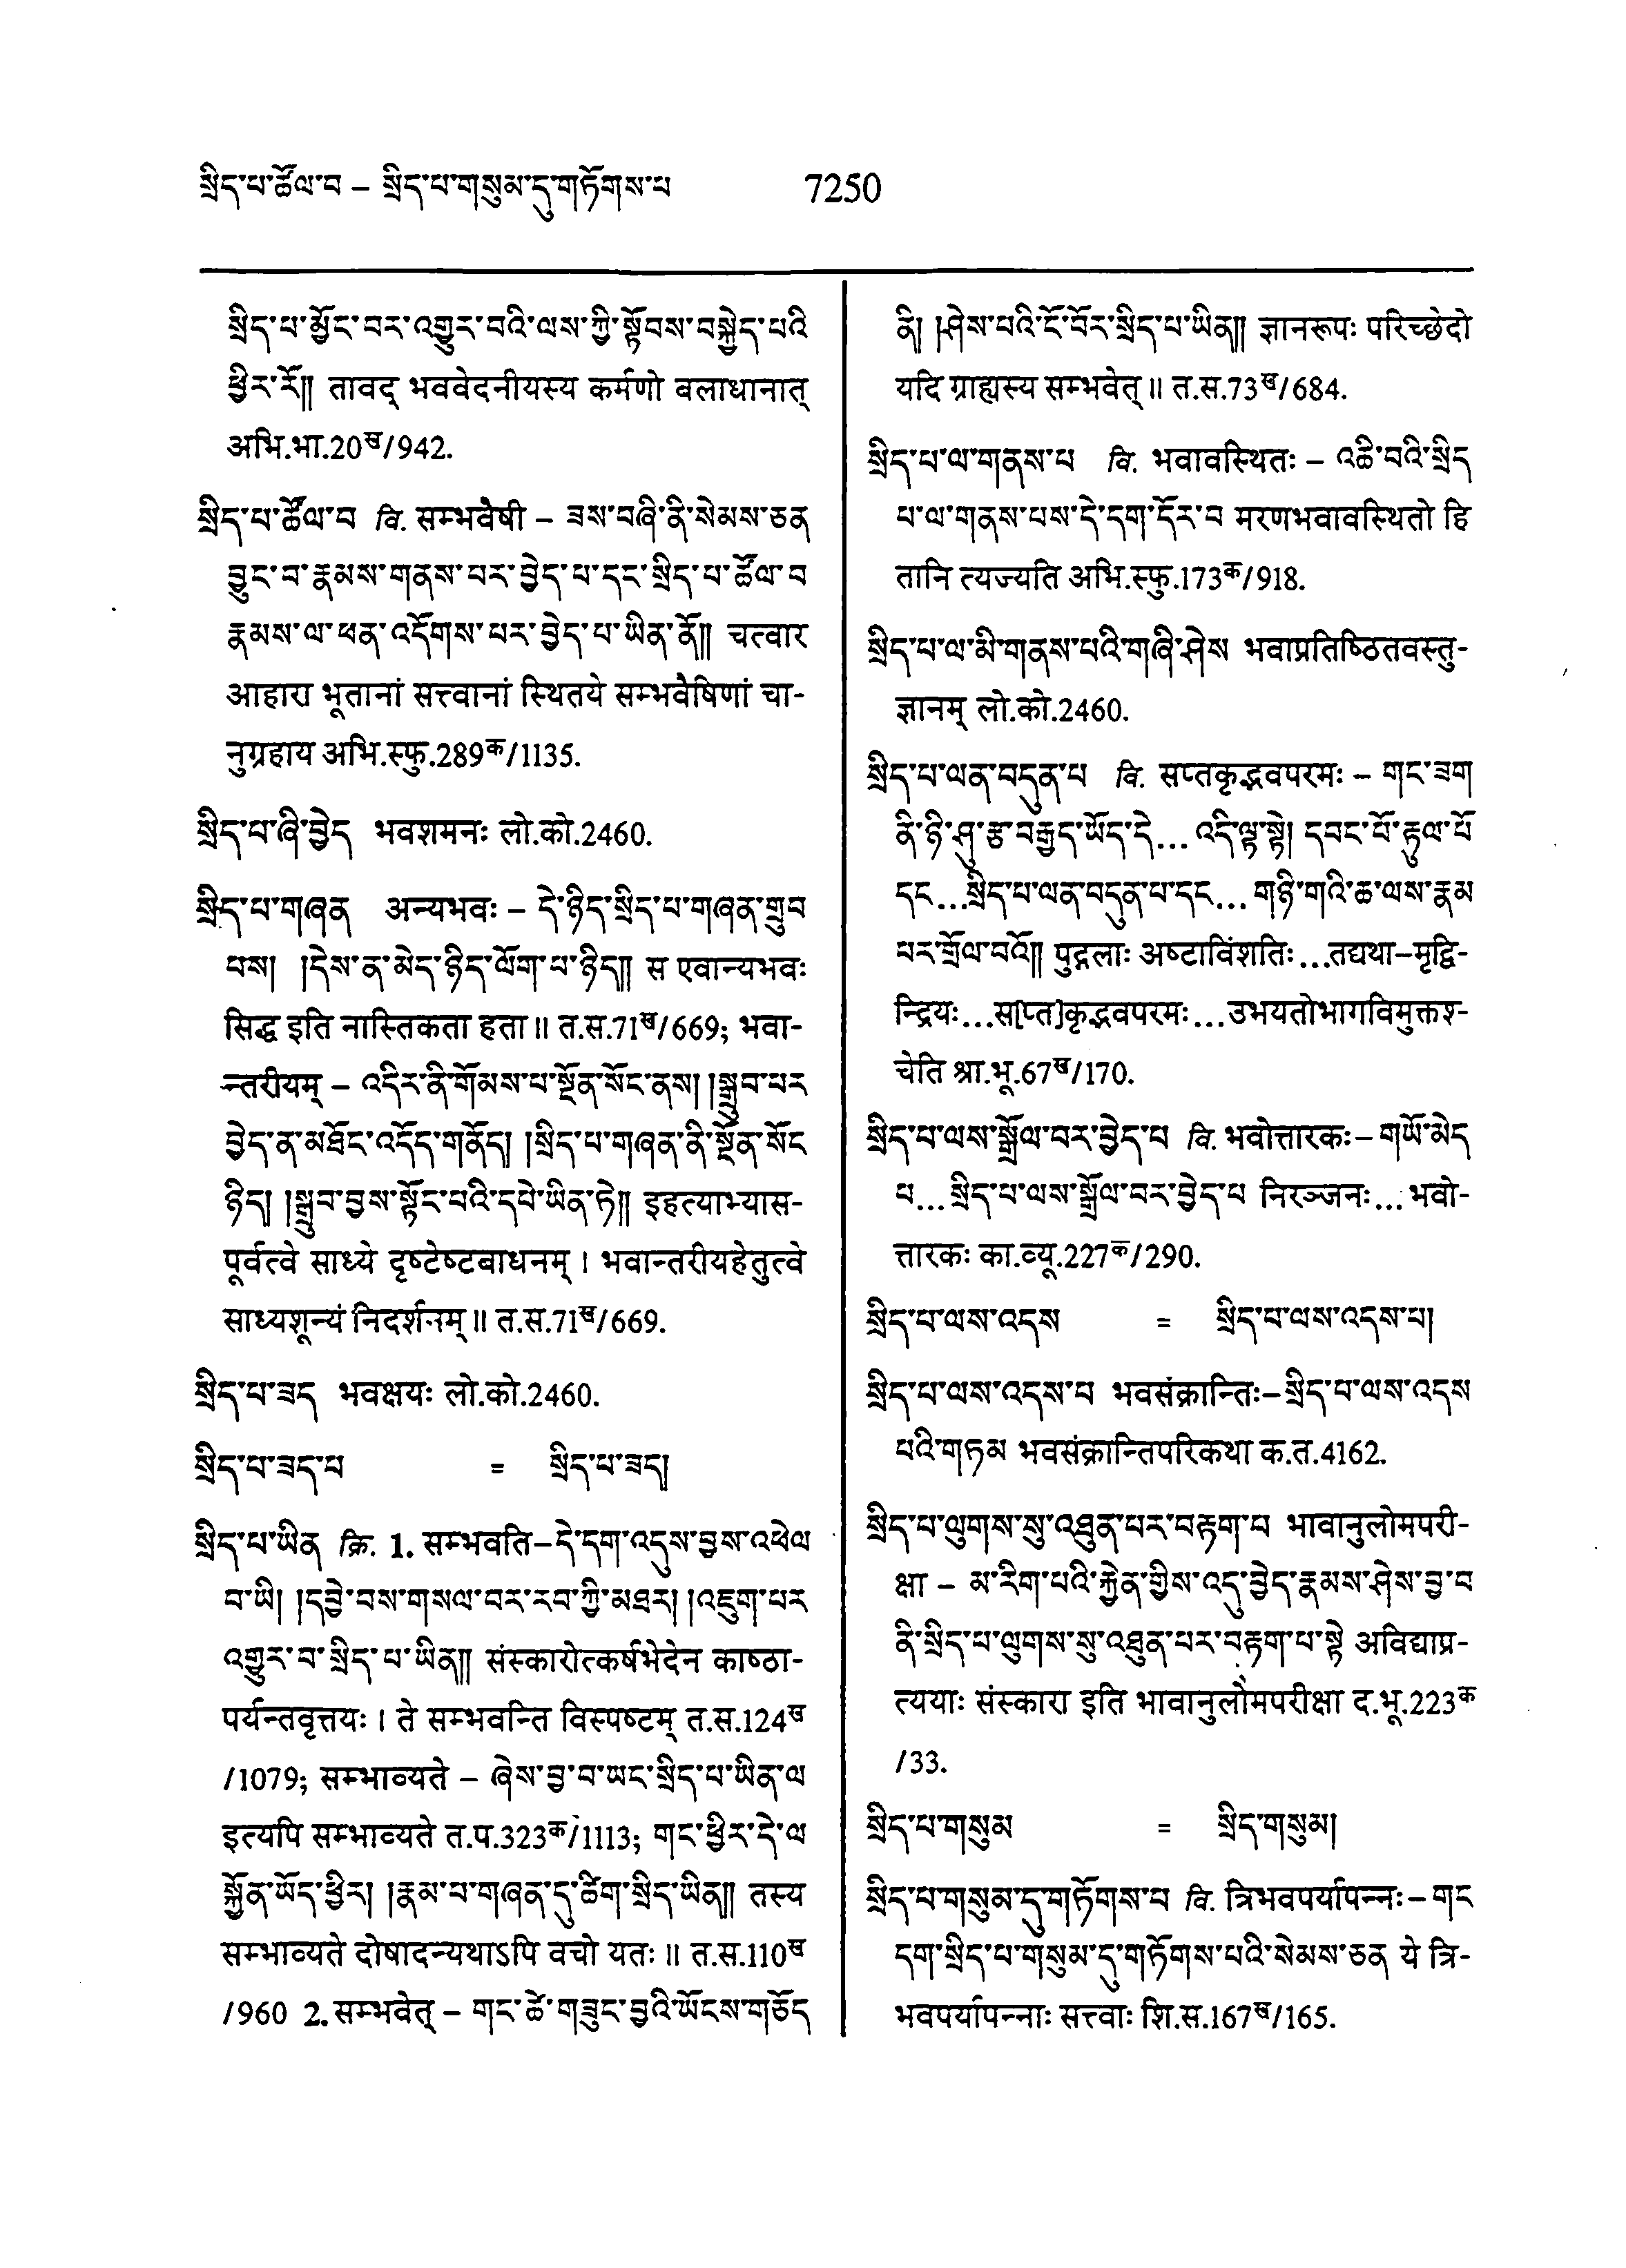 སྲིད་པ་ཚོལ་བ – སྲིད་པ་གསུམ་དུ་གཏོགས་པ
7250
སྲིད་པ་མྱོང་བར་འགྱུར་བའི་ལས་ཀྱི་སྟོབས་བསྐྱེད་པའི
ཕྱིར་རོ༎ तावद् भववेदनीयस्य कर्मणो बलाधानात्
अभि.भा.20ख/942.
སྲིད་པ་ཚོལ་བ वि. सम्भवैषी – ཟས་བཞི་ནི་སེམས་ཅན
བྱུང་བ་རྣམས་གནས་པར་བྱེད་པ་དང་སྲིད་པ་ཚོལ་བ
རྣམས་ལ་ཕན་འདོགས་པར་བྱེད་པ་ཡིན་ནོ༎ चत्वार
आहारा भूतानां सत्त्वानां स्थितये सम्भवैषिणां चा-
नुग्रहाय अभि.स्फु.289क/1135.
སྲིད་པ་ཞི་བྱེད भवशमनः लो.को.2460.
སྲིད་པ་གཞན अन्यभवः – དེ་ཉིད་སྲིད་པ་གཞན་གྲུབ
པས། །དེས་ན་མེད་ཉིད་ལོག་པ་ཉིད༎ स एवान्यभवः
सिद्ध इति नास्तिकता हता ॥ त.स.71ख/669; भवा-
न्तरीयम् – འདིར་ནི་གོམས་པ་སྔོན་སོང་ནས། །སྒྲུབ་པར
བྱེད་ན་མཐོང་འདོད་གནོད། །སྲིད་པ་གཞན་ནི་སྔོན་སོང
ཉིད། །སྒྲུབ་བྱས་སྟོང་པའི་དཔེ་ཡིན་ཏེ༎ इहत्याभ्यास-
पूर्वत्वे साध्ये दृष्टेष्टबाधनम् । भवान्तरीयहेतुत्वे
साध्यशून्यं निदर्शनम् ॥ त.स.71ख/669.
སྲིད་པ་ཟད भवक्षयः लो.को.2460.
སྲིད་པ་ཟད་པ = སྲིད་པ་ཟད།
སྲིད་པ་ཡིན क्रि. 1. सम्भवति – དེ་དག་འདུས་བྱས་འཕེལ
བ་ཡི། །དབྱེ་བས་གསལ་བར་རབ་ཀྱི་མཐར། །འཇུག་པར
འགྱུར་བ་སྲིད་པ་ཡིན༎ संस्कारोत्कर्षभेदेन काष्ठा-
पर्यन्तवृत्तयः । ते सम्भवन्ति विस्पष्टम् त.स.124ख
/1079; सम्भाव्यते – ཞེས་བྱ་བ་ཡང་སྲིད་པ་ཡིན་ལ
इत्यपि सम्भाव्यते त.प.323क/1113; གང་ཕྱིར་དེ་ལ
སྐྱོན་ཡོད་ཕྱིར། །རྣམ་པ་གཞན་དུ་ཚིག་སྲིད་ཡིན༎ तस्य
सम्भाव्यते दोषादन्यथाऽपि वचो यतः ॥ त.स.110ख
/960 2. सम्भवेत् – གང་ཚེ་གཟུང་བྱའི་ཡོངས་གཅོད
ནི། །ཤེས་པའི་ངོ་བོར་སྲིད་པ་ཡིན༎ ज्ञानरूपः परिच्छेदो
यदि ग्राह्यस्य सम्भवेत् ॥ त.स.73ख/684.
སྲིད་པ་ལ་གནས་པ वि. भवावस्थितः – འཆི་བའི་སྲིད
པ་ལ་གནས་པས་དེ་དག་དོར་བ मरणभवावस्थितो हि
तानि त्यज्यति अभि.स्फु.173क/918.
སྲིད་པ་ལ་མི་གནས་པའི་གཞི་ཤེས भवाप्रतिष्ठितवस्तु-
ज्ञानम् लो.को.2460.
སྲིད་པ་ལན་བདུན་པ वि. सप्तकृद्भवपरमः – གང་ཟག
ནི་ཉི་ཤུ་རྩ་བརྒྱད་ཡོད་དེ... འདི་ལྟ་སྟེ། དབང་པོ་རྟུལ་པོ
དང...སྲིད་པ་ལན་བདུན་པ་དང... གཉི་གའི་ཆ་ལས་རྣམ
པར་གྲོལ་བའོ༎ पुद्गलाः अष्टाविंशतिः...तद्यथा–मृद्वि-
न्द्रियः...स[प्त]कृद्भवपरमः...उभयतोभागविमुक्तश्-
चेति श्रा.भू.67ख/170.
སྲིད་པ་ལས་སྒྲོལ་བར་བྱེད་པ वि. भवोत्तारकः – གཡོ་མེད
པ... སྲིད་པ་ལས་སྒྲོལ་བར་བྱེད་པ निरञ्जनः... भवो-
त्तारकः का.व्यू.227क/290.
སྲིད་པ་ལས་འདས = སྲིད་པ་ལས་འདས་པ།
སྲིད་པ་ལས་འདས་པ भवसंक्रान्तिः – སྲིད་པ་ལས་འདས
པའི་གཏམ भवसंक्रान्तिपरिकथा क.त.4162.
སྲིད་པ་ལུགས་སུ་འཐུན་པར་བརྟག་པ भावानुलोमपरी-
क्षा – མ་རིག་པའི་རྐྱེན་གྱིས་འདུ་བྱེད་རྣམས་ཤེས་བྱ་བ
ནི་སྲིད་པ་ལུགས་སུ་འཐུན་པར་བརྟག་པ་སྟེ अविद्याप्र-
त्ययाः संस्कारा इति भावानुलोमपरीक्षा द.भू.223क
/33.
སྲིད་པ་གསུམ = སྲིད་གསུམ།
སྲིད་པ་གསུམ་དུ་གཏོགས་པ वि. त्रिभवपर्यापन्नः – གང
དག་སྲིད་པ་གསུམ་དུ་གཏོགས་པའི་སེམས་ཅན ये त्रि-
भवपर्यापन्नाः सत्त्वाः शि.स.167ख/165.